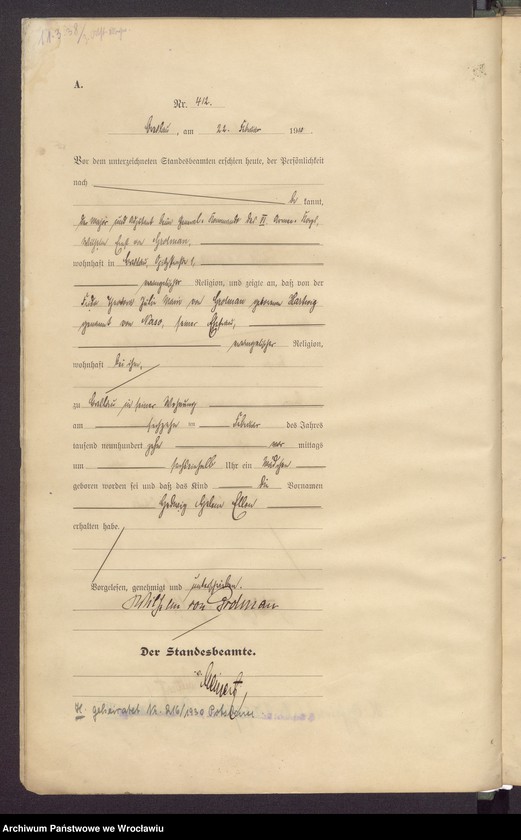 A.
Nr. 412.
Breslau, am 22. Februar 1910.
Vor dem unterzeichneten Standesbeamten erschien heute, der Persönlichkeit
nach
be kannt,
der Major und Adjutant beim General-Kommando des VI Armee-Korps,
Wilhelm von Grolman,
wohnhaft in Breslau,
evangelischer Religion, und zeigte an, daß von der
Marie von Grolman geborenen Hartwig
genannt von Naso, seiner Ehefrau,
evangelischer Religion,
wohnhaft bei ihm,
zu Breslau in seiner Wohnung
am sechzehn ten Februar des Jahres
tausend neunhundert zehn vor mittags
um Uhr ein Mädchen
geboren worden sei und daß das Kind die Vornamen
Hedwig Helene Ellen
erhalten habe.
Vorgelesen, genehmigt und unterschrieben.
Wilhelm von Grolman
Der Standesbeamte.
H. geheiratet Nr. 216/1930 Potsdam
Archiwum Państwowe we Wrocławiu